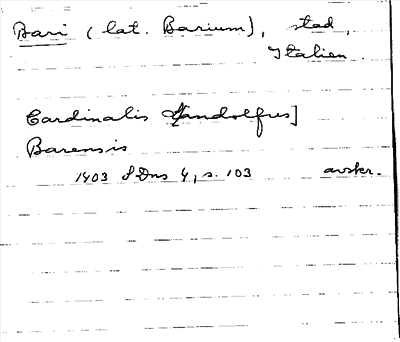 Bari (lat. Barium), stad,
Italien
Cardinalis Landolfus]
Barensis
1403 SDns 4, s. 103 avskr.